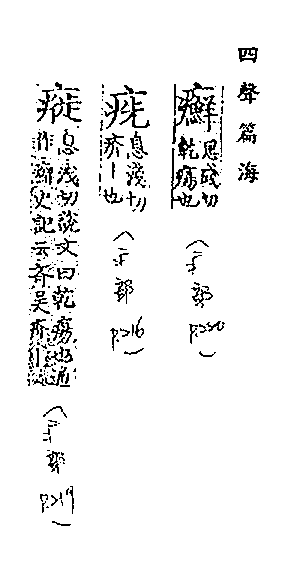 四聲篇海
癬 思淺切
乾瘍也
(疒部 p.220)
息淺切
疥丨也
(疒部 p.216)
息淺切說文曰乾瘍也通
作癬史記云齊吴疥
(疒部 p.219)